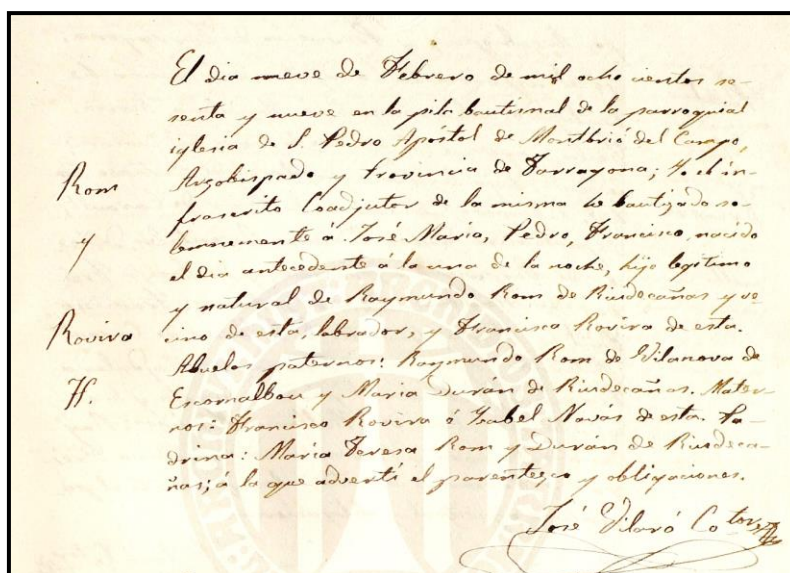 El dia nueve de Febrero de mil ocho cientos se-
senta y nueve en la pila bautismal de la parroquial
iglesia de S. Pedro Apóstol de Montbrió del Campo,
Rom
Arzobispado y Provincia de Tarragona; Yo el in-
frascrito Coadjutor de la misma he bautizado so-
y
lemnemente á José Maria, Pedro, Francisco, nacido
el dia antecedente á la una de la noche, hijo legitimo
y natural de Raymundo Rom de Riudecañas y ve-
Rovira
cino de esta, labrador, y Francisca Rovira de esta.
Abuelos paternos: Raymundo Rom de Vilanova de
Escornalbou y Maria Durán de Riudecañas. Mater-
nos: Francisco Rovira é Ysabel Novás de esta. Pa-
drina: Maria Teresa Rom y Durán de Riudeca-
ñas; á la que advertí el parentesco y obligaciones.
José Vilaró Co.tor